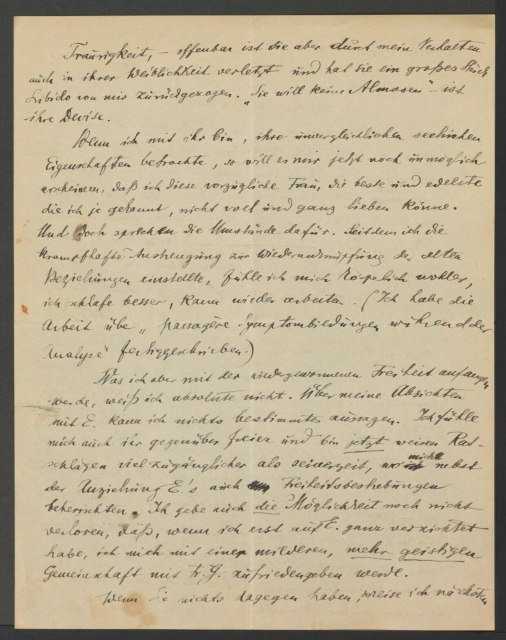 Traurigkeit, – offenbar ist sie aber durch mein Verhalten
auch in ihrer Weiblichkeit verletzt und hat sie ein großes Stück
Libido von mir zurückgezogen. „Sie will keine Almosen“ – ist
ihre Devise.
Wenn ich mit ihr bin, ihre unvergleichlichen seelischen
Eigenschaften betrachte, so will es mir jetzt noch unmöglich
erscheinen, daß ich diese vorzügliche Frau, die beste und edelste
die ich je gekannt, nicht voll und ganz lieben könne.
Und doch sprechen die Umstände dafür. Seitdem ich die
krampfhafte Anstrengung zur Wiederanknüpfung der alten
Beziehungen einstellte, fühle ich mich körperlich wohler,
ich schlafe besser, kann wieder arbeiten. (Ich habe die
Arbeit über „passagère Symptombildungen während der
Analyse“ fertiggeschrieben.)
Was ich aber mit der wiedergewonnenen Freiheit anfangen
werde, weiß ich absolute nicht. Über meine Absichten
mit E. kann ich nichts bestimmtes aussagen. Ich fühle
mich auch ihr gegenüber freier und bin jetzt weisen Rat-
schlägen viel zugänglicher als seinerzeit, wo mich nebst
der Anziehung E.'s auch Freiheitsbestrebungen
beherrschten. Ich gebe auch die Möglichkeit noch nicht
verloren, daß, wenn ich erst auf E. ganz verzichtet
habe, ich mich mit einer milderen, mehr geistigen
Gemeinschaft mit Fr. G. zufriedengeben werde.
Wenn Sie nichts dagegen haben, reise ich nächsten